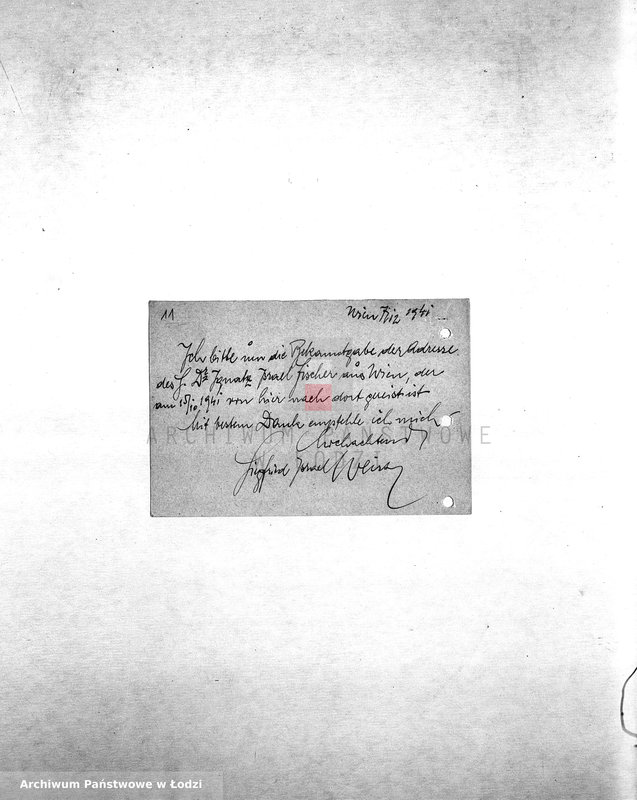 11
Wien 7/12 1941
Ich bitte um die Bekanntgabe der Adresse
des H. Dr Ignatz Israel Fischer aus Wien, der
am 15/10 1941 von hier nach dort gereist ist
Mit bestem Danke empfehle ich mich
Hochachtend
Siegfried Israel Weiss
ARCHIWUM PAŃSTWOWE
W ŁODZI
Archiwum Państwowe w Łodzi